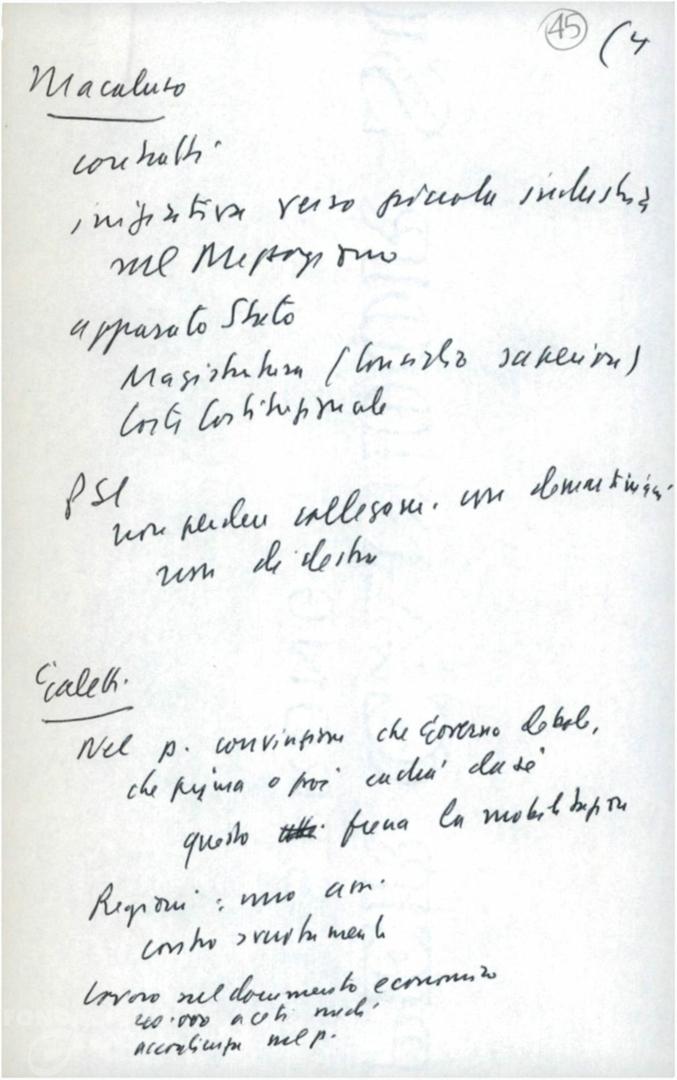 45 (4
Macaluso
contratti
iniziativa verso piccola industria
nel Mezzogiorno
apparato Stato
Magistratura (Consiglio superiore)
Corte Costituzionale
PSI
non perdere collegam. con demartiniani
non di destra
Galetti
Nel p. convinzione che Governo debole,
che prima o poi cadrà da sé
questo frena la mobilitazione
Regioni:
contro svuotamenti
Lavoro sul documento economico
40.000
accoglienza nel p.